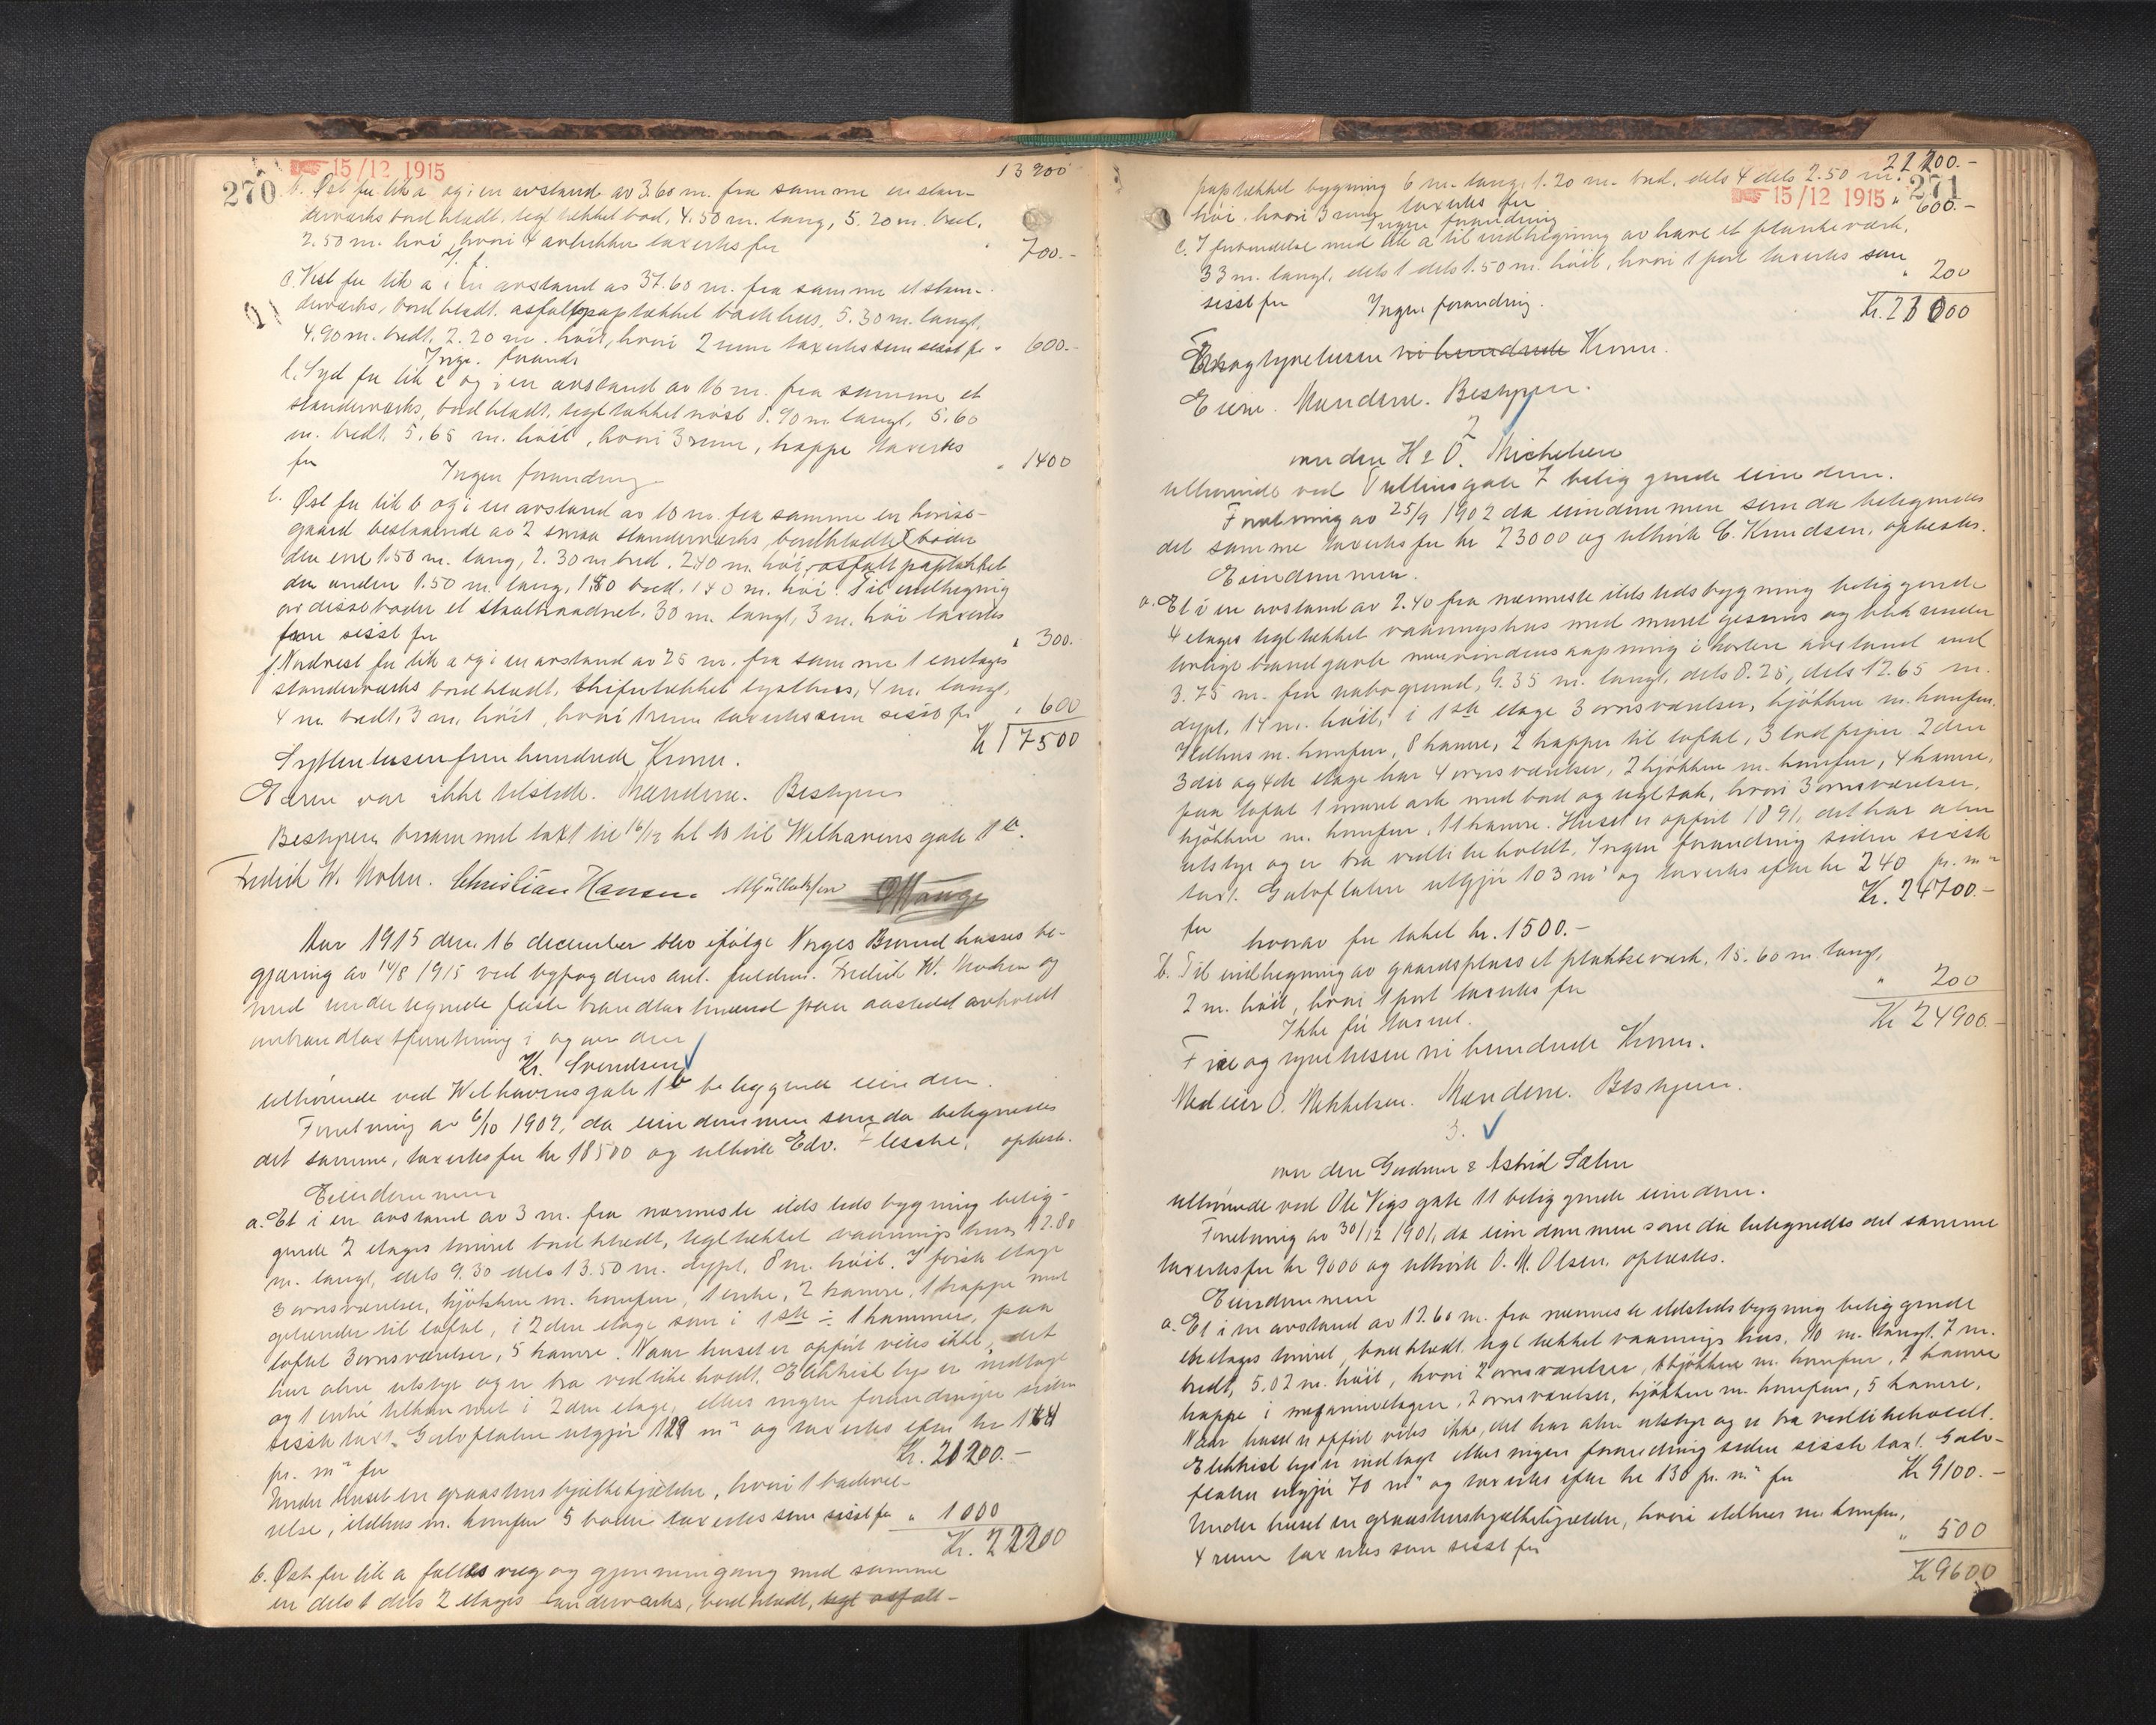 15/12 1915
270
13 900
b. Øst for lit a og i en avstand av 3.60 m. fra samme en sten-
derværks bordklædt, tegltækket bod, 4.50 m. lang, 5.20 m. bred,
2.50 m. höi, hvori 4 avlukker taxertes for " 700.-
c. Vest for lit a i en avstand av 37.60 m. fra samme et sten-
derværks, bordklædt, asfaltpaptækket badehus, 5.30 m. langt,
4.90 m. bredt, 2.20 m. höit, hvori 2 rum taxertes som sisst for " 600.-
Inge. forandr
d. Syd for lit c og i en avstand av 16 m. fra samme et
stenderværks, bordklædt, tegltækket nöst 8.90 m langt, 5.60
m. bredt, 5.65 m. höit, hvori 3 rum, trappe taxertes
for " 1400
Ingen forandring
e. Øst for lit b og i en avstand av 10 m. fra samme en hønse-
gaard bestaaende av 2 smaa stenderværks bordklædte boder
den ene 1.50 m. lang, 2.30 m bred, 2.40 m. höi, asfaltpaptækket
den anden 1.50 m. lang, 1.80 bred, 1.40 m. höi. Til indhegning
av disse boder et staaltraadnet, 30 m. langt, 3 m. höi taxertes
som sisst for " 300.
f. Nordvest for lit a og i en avstand av 25 m. fra samme 1 enetages
stenderværks bordklædt, skifertækket lysthus, 4 m. langt,
4 m. bredt, 3 m. höit, hvori 1 rum taxertes som sisst for " 600
Kr 17500
Syttentusenfemhundrede Kroner.
Eieren var ikke tilstede. Mændene. Bestyrer
Bestyreren berammet taxt til 16/12 kl. 10 til Welhavens gate 1b.
Fredrik W. Mohn. Christian Hansen
Aar 1915 den 16 december blev ifølge Norges Brandkasses be-
gjæring av 14/8 1915 ved byfogdens aut. fuldm. Fredrik W. Mohn og
med undertegnede faste brandtaxtmænd paa aastedet avholdt
ombrandtaxtforretning i og over den
Kr. Svendsen
tilhørende ved Welhavensgate 1b beliggende eiendom.
Forretning av 6/10 1902, da eiendommen som da betegnedes
det samme, taxertes for kr 18500 og tilhørte Edv. Flesche, oplæst.
Eiendommen
a. Et i en avstand av 3 m. fra nærmeste ildstedsbygning belig-
gende 2 etages tømret bordklædt, tegltækket vaaningshus 12.80
m. langt, dels 9.30 dels 13.50 m. dypt, 8 m. höit. I første etage
3 ovnsværelser, kjøkken m. komfur, 1 entre, 2 kamre, 1 trappe med
gelænder til loftet, i 2den etage som i 1ste ÷ 1 kammer, paa
loftet 3 ovnsværelser, 5 kamre. Naar huset er opfört vites ikke, det
har alm. utstyr og er bra vedlikeholdt. Elektrisk lys er indlagt
og 1 entre tilkommet i 2den etage, ellers ingen forandringer siden
sisste taxt. Gulvflaten utgjör 129 m² og taxertes efter kr 164
pr. m² for Kr. 21200.-
Under huset en graastens bjælkekjælder, hvori 1 badevæ-
relse, ildhus m. komfur 5 boder taxertes som sisst for " 1000
Kr. 22200
b. Øst for lit a fælles væg og gjennemgang med samme
en dels 1 dels 2 etages stenderværks, bordklædt, tegl asfalt-
22200.-
15/12 1915
271
paptækket bygning 6 m. lang, 1.20 m. bred, dels 4 dels 2.50 m.
höi, hvori 3 rum taxertes for " 600.-
Ingen forandring
c. I forbindelse med lit a til indhegning av have et plankeværk,
33 m. langt, dels 1 dels 1.50 m. höit, hvori 1 port taxertes som
sisst for " 200
Ingen forandring.
Kr. 23000
Treogtyvetusen ni hundrede Kroner.
Eieren. Mændene. Bestyrer.
2
over den H & O. Michelsen
tilhørende ved Tullinsgate 7 beliggende eiendom.
Forretning av 25/9 1902 da eiendommen som da betegnedes
det samme taxertes for kr 23000 og tilhørte C. Knudsen, oplæstes.
Eiendommen.
a. Et i en avstand av 2.40 fra nærmeste ildstedsbygning beliggende
4 etages tegltækket vaaningshus med muret gesims og
lovlige brandgavle vindusaapning i kortere avstand end
3.75 m. fra nabogrund, 9.35 m. langt, dels 8.25, dels 12.65 m.
dypt, 14 m. höit, i 1ste etage 3 ovnsværelser, kjøkken m. komfur,
Ildhus m. komfur, 8 kamre, 2 trapper til loftet, 3 lodpiper 2den
3die og 4de etage har 4 ovnsværelser, 2 kjøkken m. komfur, 4 kamre,
paa loftet 1 muret ark med bord og tegltak, hvori 3 ovnsværelser,
kjøkken m. komfur, 11 kamre. Huset er opfört 1891, det har alm
utstyr og er bra vedlikeholdt. Ingen forandring siden sisste
taxt. Gulvflaten utgjör 103 m² og taxertes efter kr 240 pr. m²
for Kr. 24700.-
hvorav for taket kr. 1500.-
b. Til indhegning av gaardsplass et plankeværk, 15.60 m. langt,
2 m. höit, hvori 1 port taxertes for " 200
Ikke för taxert.
Kr 24900.-
Fireogtyvetusen ni hundrede Kroner.
Medeier O. Mikkelsen. Mændene. Bestyrer.
3.
over den Gudrun & Astrid Sælen
tilhørende ved Ole Vigs gate 11 beliggende eiendom.
Forretning av 30/12 1901, da eiendommen som da betegnedes det samme
taxertes for kr 9000 og tilhørte O. M. Olsen, oplæstes.
Eiendommen
a. Et i en avstand av 12.60 m. fra nærmeste ildstedsbygning beliggende
enetages tømret, bordklædt tegltækket vaaningshus, 10 m. langt, 7 m.
bredt, 5.02 m. höit, hvori 2 ovnsværelser, 1 kjøkken m. komfur, 2 kamre
trappe i mesaninetagen, 2 ovnsværelser, kjøkken m. komfur, 5 kamre.
Naar huset er opfört vites ikke, det har alm utstyr og er bra vedlikeholdt.
Elektrisk lys er indlagt ellers ingen forandring siden sisste taxt. Gulv-
flaten utgjör 70 m² og taxertes efter kr 130 pr. m² for Kr 9100.-
Under huset en graastensbjælkekjælder, hvori ildhus m. komfur,
4 rum taxertes som sisst for " 500
Kr 9600